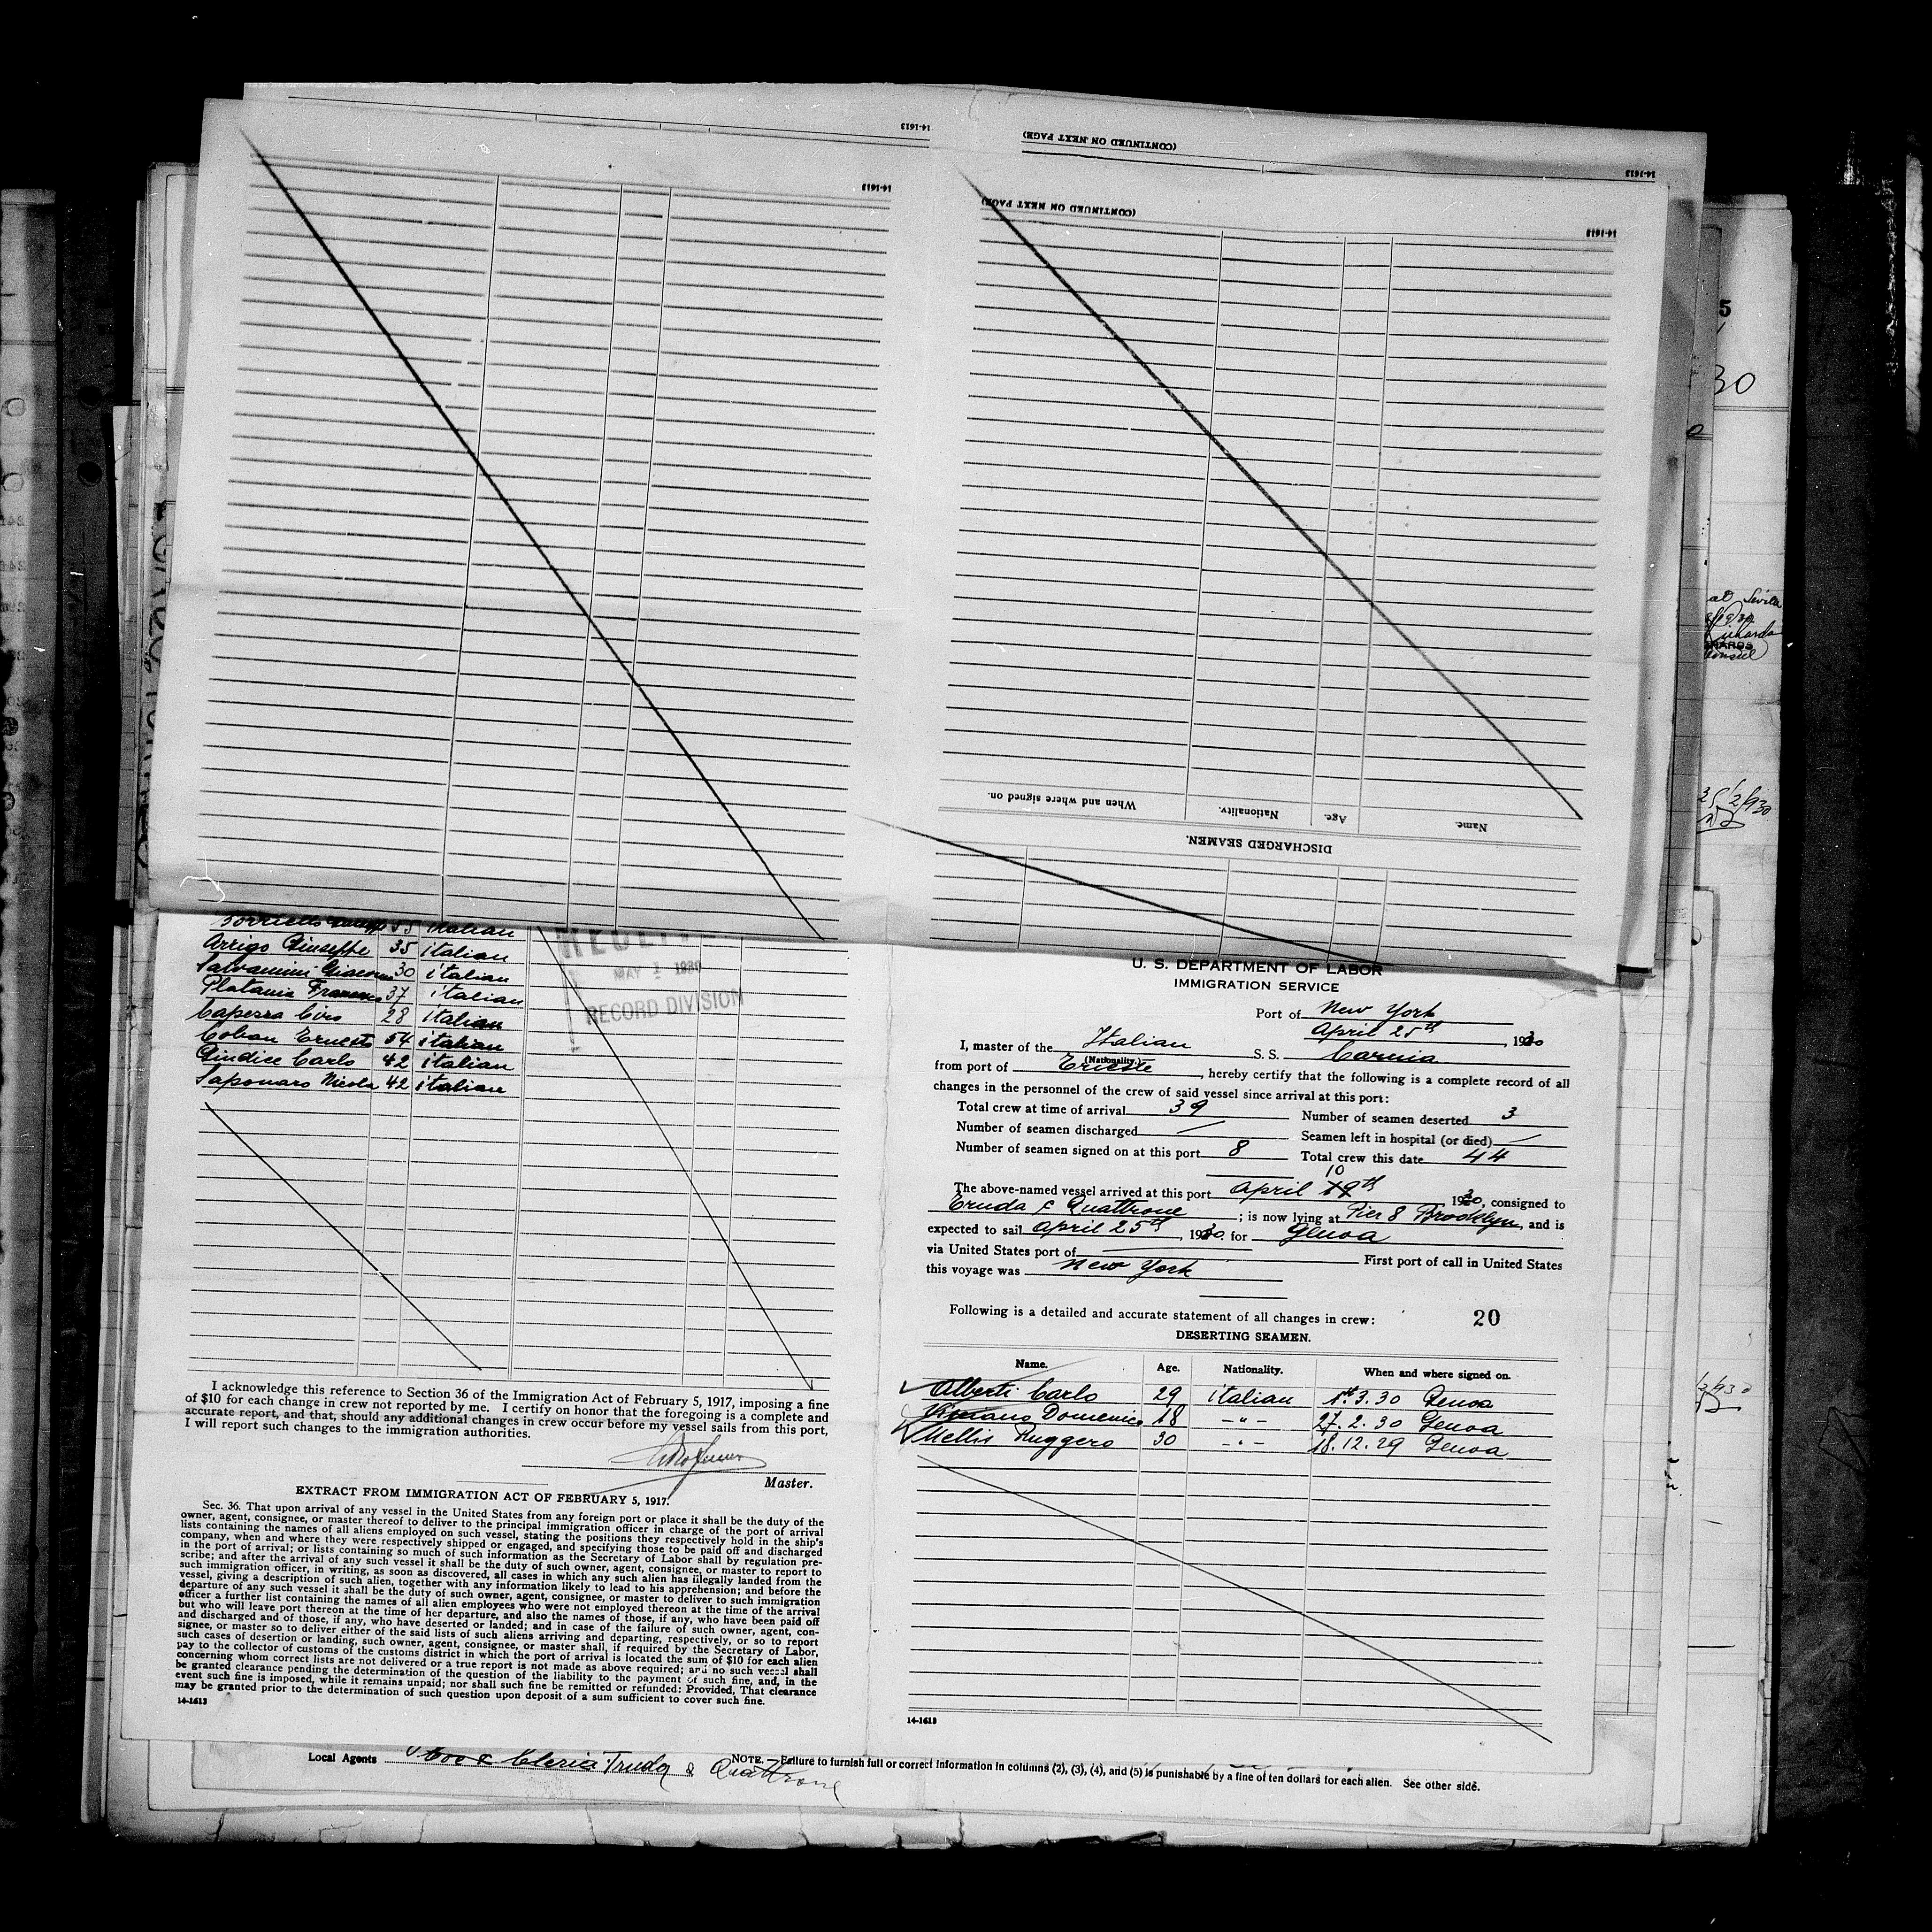 14-1613
(CONTINUED ON NEXT PAGE)
14-1613
14-1613
(CONTINUED ON NEXT PAGE)
14-1613
When and where signed on.
Nationality.
Age.
Name.
DISCHARGED SEAMEN.
55 italian
Arrigo Giuseppe 35 italian
30 italian
Platania 37 italian
Caperra Ciro 28 italian
Coban Ernesto 54 italian
Giudice Carlo 42 italian
Saponaro Nicola 42 italian
MAY 1 1930
RECORD DIVISION
I acknowledge this reference to Section 36 of the Immigration Act of February 5, 1917, imposing a fine
of $10 for each change in crew not reported by me. I certify on honor that the foregoing is a complete and
accurate report, and that, should any additional changes in crew occur before my vessel sails from this port,
I will report such changes to the immigration authorities.
Master.
EXTRACT FROM IMMIGRATION ACT OF FEBRUARY 5, 1917.
Sec. 36. That upon arrival of any vessel in the United States from any foreign port or place it shall be the duty of the
owner, agent, consignee, or master thereof to deliver to the principal immigration officer in charge of the port of arrival
lists containing the names of all aliens employed on such vessel, stating the positions they respectively hold in the ship's
company, when and where they were respectively shipped or engaged, and specifying those to be paid off and discharged
in the port of arrival; or lists containing so much of such information as the Secretary of Labor shall by regulation pre-
scribe; and after the arrival of any such vessel it shall be the duty of such owner, agent, consignee, or master to report to
such immigration officer, in writing, as soon as discovered, all cases in which any such alien has illegally landed from the
vessel, giving a description of such alien, together with any information likely to lead to his apprehension; and before the
departure of any such vessel it shall be the duty of such owner, agent, consignee, or master to deliver to such immigration
officer a further list containing the names of all alien employees who were not employed thereon at the time of the arrival
but who will leave port thereon at the time of her departure, and also the names of those, if any, who have been paid off
and discharged and of those, if any, who have deserted or landed; and in case of the failure of such owner, agent, con-
signee, or master so to deliver either of the said lists of such aliens arriving and departing, respectively, or so to report
such cases of desertion or landing, such owner, agent, consignee, or master shall, if required by the Secretary of Labor,
pay to the collector of customs of the customs district in which the port of arrival is located the sum of $10 for each alien
concerning whom correct lists are not delivered or a true report is not made as above required; and no such vessel shall
be granted clearance pending the determination of the question of the liability to the payment of such fine, and, in the
event such fine is imposed, while it remains unpaid; nor shall such fine be remitted or refunded: Provided, That clearance
may be granted prior to the determination of such question upon deposit of a sum sufficient to cover such fine.
14-1613
U. S. DEPARTMENT OF LABOR
IMMIGRATION SERVICE
Port of New York
April 25th, 1930
I, master of the Italian S. S. Carnia
(Nationality.)
from port of Trieste, hereby certify that the following is a complete record of all
changes in the personnel of the crew of said vessel since arrival at this port:
Total crew at time of arrival 39 Number of seamen deserted 3
Number of seamen discharged / Seamen left in hospital (or died) /
Number of seamen signed on at this port 8 Total crew this date 44
The above-named vessel arrived at this port April 10th, 1930, consigned to
Truda & Quattrone; is now lying at Pier 8 Brooklyn, and is
expected to sail April 25th, 1930. for Genoa
via United States port of First port of call in United States
this voyage was New York
Following is a detailed and accurate statement of all changes in crew: 20
DESERTING SEAMEN.
Name. Age. Nationality. When and where signed on.
Alberti Carlo 29 italian 1st.3.30 Genoa
Domenico 18 -"- 27.2.30 Genoa
Mellis Ruggero 30 -"- 18.12.29 Genoa
14-1613
Local Agents Cleria Truda & Quattrone
NOTE.—Failure to furnish full or correct information in columns (2), (3), (4), and (5) is punishable by a fine of ten dollars for each alien. See other side.